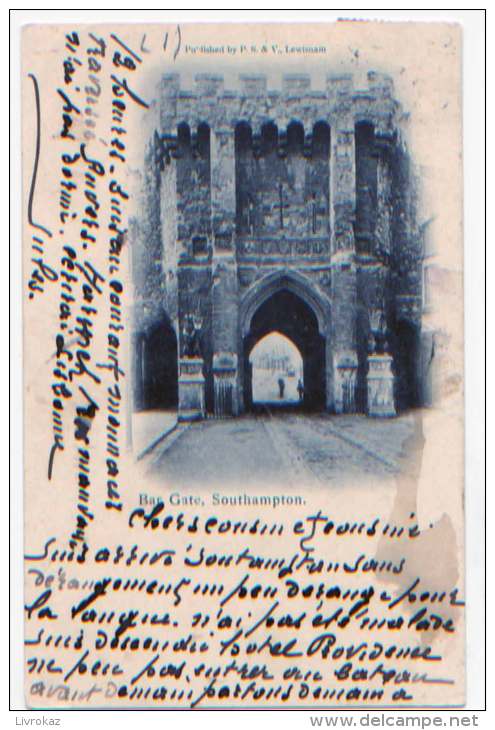 Published by P. S. & V., Lewisham
Bar Gate, Southampton.
Chers cousin et cousine
suis arrivé Southampton sans
dérangement, un peu dérangé pour
la langue. n'ai pas été malade
suis descendu hotel Providence
ne peu pas entrer au bateau
avant demain partons demain a
12 heures. suis au courant
Anvers. Havre
n'ai pas dormi.
Jules.
Livrokaz
http://www.delcampe.net